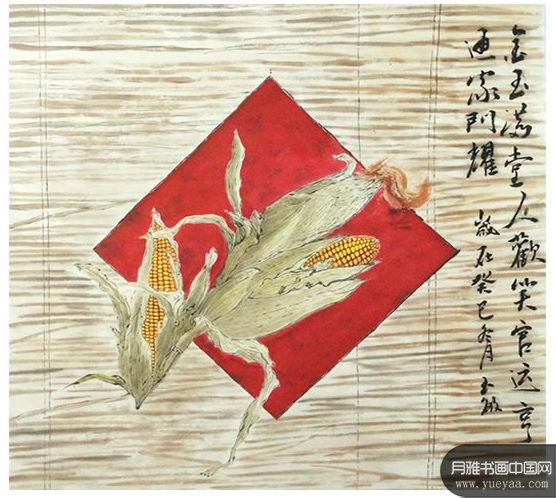 金玉满堂人歡笑官运亨
通家门耀
歲在癸巳冬月玉敏
月雅书画中国网
www.yueyaa.com